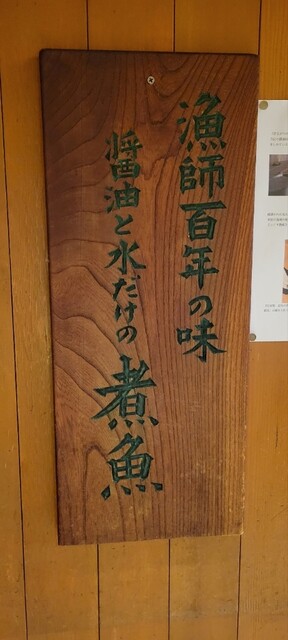 漁師百年の味
醤油と水だけの
煮魚